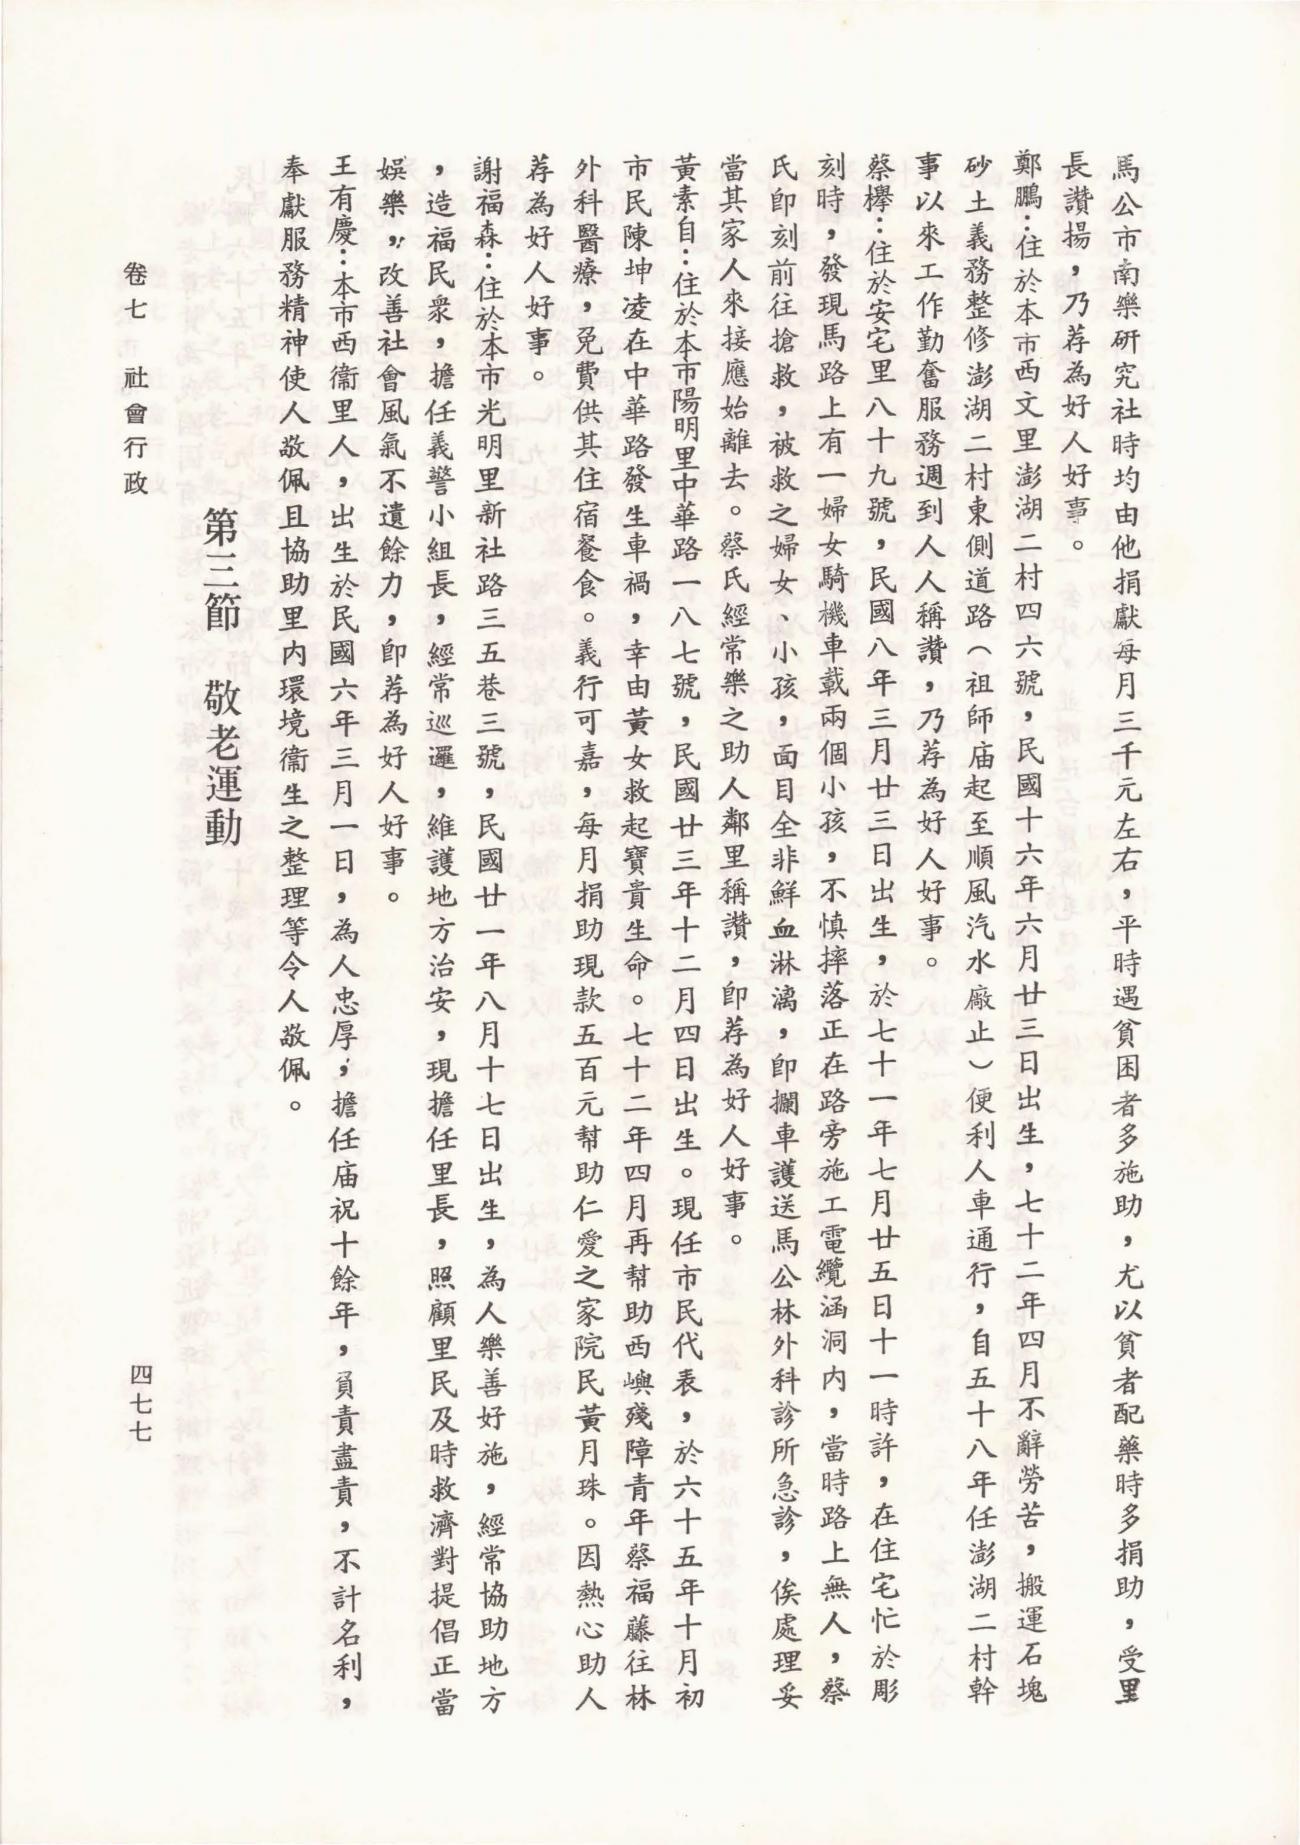 馬公市南樂研究社時均由他捐獻每月三千元左右，平時遇貧困者多施助，尤以貧者配藥時多捐助，受里
長讚揚，乃荐為好人好事。
鄭鵬：住於本市西文里澎湖二村四六號，民國十六年六月廿三日出生，七十二年四月不辭勞苦，搬運石塊
砂土義務整修澎湖二村東側道路（祖師庙起至順風汽水廠止）便利人車通行，自五十八年任澎湖二村幹
事以來工作勤奮服務週到人人稱讚，乃荐為好人好事。
蔡欅：住於安宅里八十九號，民國八年三月廿三日出生，於七十一年七月廿五日十一時許，在住宅忙於彫
刻時，發現馬路上有一婦女騎機車載兩個小孩，不慎摔落正在路旁施工電纜涵洞內，當時路上無人，蔡
氏即刻前往搶救，被救之婦女、小孩，面目全非鮮血淋漓，即攔車護送馬公林外科診所急診，俟處理妥
當其家人來接應始離去。蔡氏經常樂之助人鄰里稱讚，即荐為好人好事。
黃素自：住於本市陽明里中華路一八七號，民國廿三年十二月四日出生。現任市民代表，於六十五年十月初
市民陳坤凌在中華路發生車禍，幸由黃女救起寶貴生命。七十二年四月再幫助西嶼殘障青年蔡福藤往林
外科醫療，免費供其住宿餐食。義行可嘉，每月捐助現款五百元幫助仁愛之家院民黃月珠。因熱心助人
荐為好人好事。
謝福森：住於本市光明里新社路三五巷三號，民國廿一年八月十七日出生，為人樂善好施，經常協助地方
，造福民衆，擔任義警小組長，經常巡邏，維護地方治安，現擔任里長，照顧里民及時救濟對提倡正當
娛樂，改善社會風氣不遺餘力，即荐為好人好事。
王有慶：本市西衞里人，出生於民國六年三月一日，為人忠厚，擔任庙祝十餘年，負責盡責，不計名利，
奉獻服務精神使人敬佩且協助里內環境衞生之整理等令人敬佩。
第三節　敬老運動
卷七　社會行政
四七七